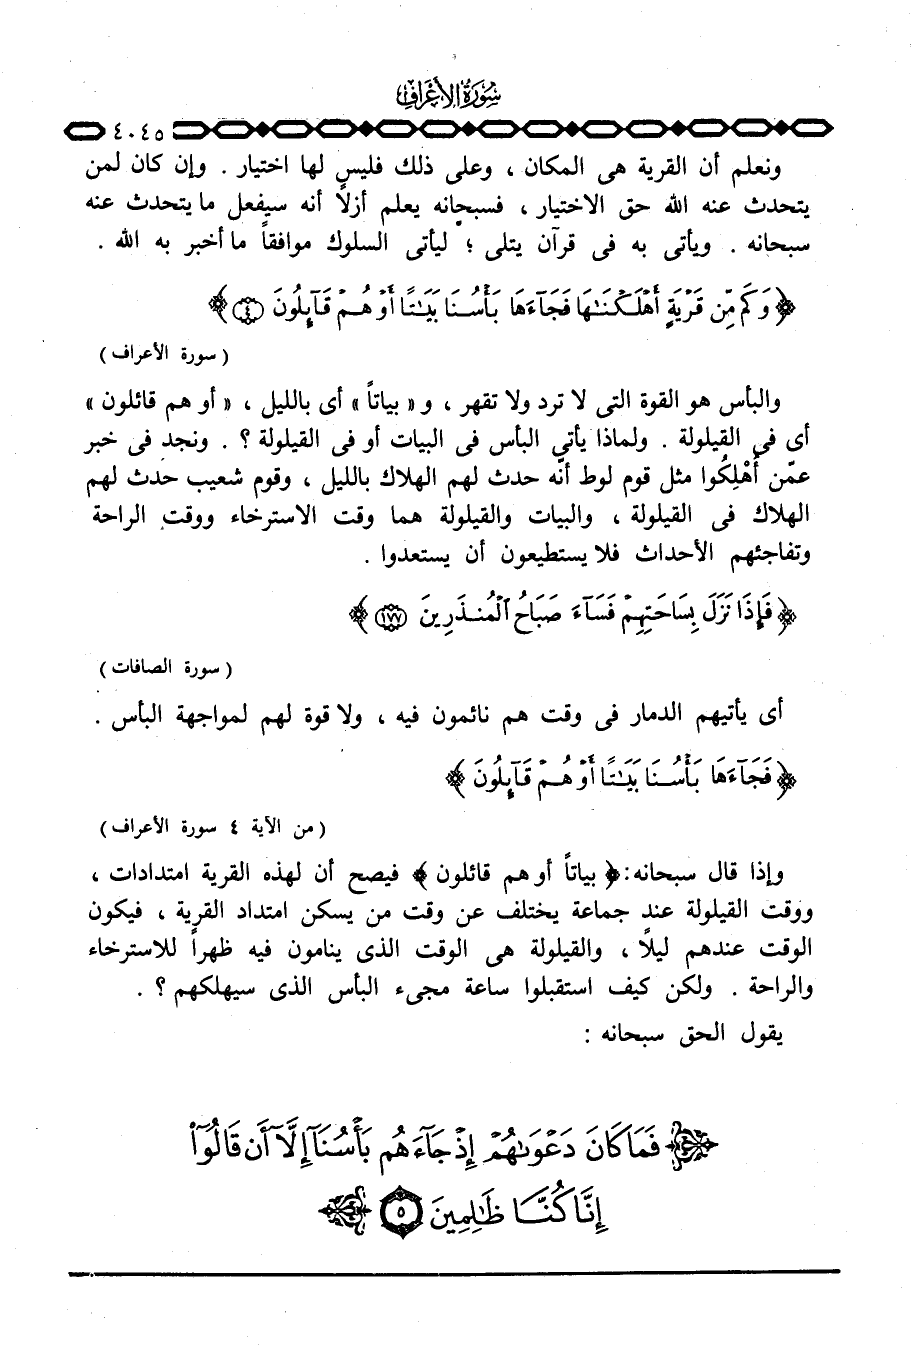 سورة الأعراف
٤٠٤٥
ونعلم أن القرية هى المكان ، وعلى ذلك فليس لها اختيار . وإن كان لمن
يتحدث عنه الله حق الاختيار ، فسبحانه يعلم أزلاً أنه سيفعل ما يتحدث عنه
سبحانه . ويأتى به فى قرآن يتلى ؛ ليأتى السلوك موافقاً ما أخبر به الله .
﴿ وَكَم مِّن قَرْيَةٍ أَهْلَكْنَٰهَا فَجَآءَهَا بَأْسُنَا بَيَٰتًا أَوْ هُمْ قَآئِلُونَ ٤ ﴾
( سورة الأعراف )
والبأس هو القوة التى لا ترد ولا تقهر ، و « بياتاً » أى بالليل ، « أو هم قائلون »
أى فى القيلولة . ولماذا يأتي البأس فى البيات أو فى القيلولة ؟ . ونجد فى خبر
عمّن أُهْلِكُوا مثل قوم لوط أنّه حدث لهم الهلاك بالليل ، وقوم شعيب حدث لهم
الهلاك فى القيلولة ، والبيات والقيلولة هما وقت الاسترخاء ووقت الراحة
وتفاجئهم الأحداث فلا يستطيعون أن يستعدوا .
﴿ فَإِذَا نَزَلَ بِسَاحَتِهِمْ فَسَآءَ صَبَاحُ ٱلْمُنذَرِينَ ١٧٧ ﴾
( سورة الصافات )
أى يأتيهم الدمار فى وقت هم نائمون فيه ، ولا قوة لهم لمواجهة البأس .
﴿ فَجَآءَهَا بَأْسُنَا بَيَٰتًا أَوْ هُمْ قَآئِلُونَ ﴾
( من الآية ٤ سورة الأعراف )
وإذا قال سبحانه : ﴿ بياتاً أو هم قائلون ﴾ فيصح أن لهذه القرية امتدادات ،
ووقت القيلولة عند جماعة يختلف عن وقت من يسكن امتداد القرية ، فيكون
الوقت عندهم ليلاً ، والقيلولة هى الوقت الذى ينامون فيه ظهراً للاسترخاء
والراحة . ولكن كيف استقبلوا ساعة مجىء البأس الذى سيهلكهم ؟ .
يقول الحق سبحانه :
﴿ فَمَا كَانَ دَعْوَىٰهُمْ إِذْ جَآءَهُم بَأْسُنَآ إِلَّآ أَن قَالُوٓا۟
إِنَّا كُنَّا ظَٰلِمِينَ ٥ ﴾